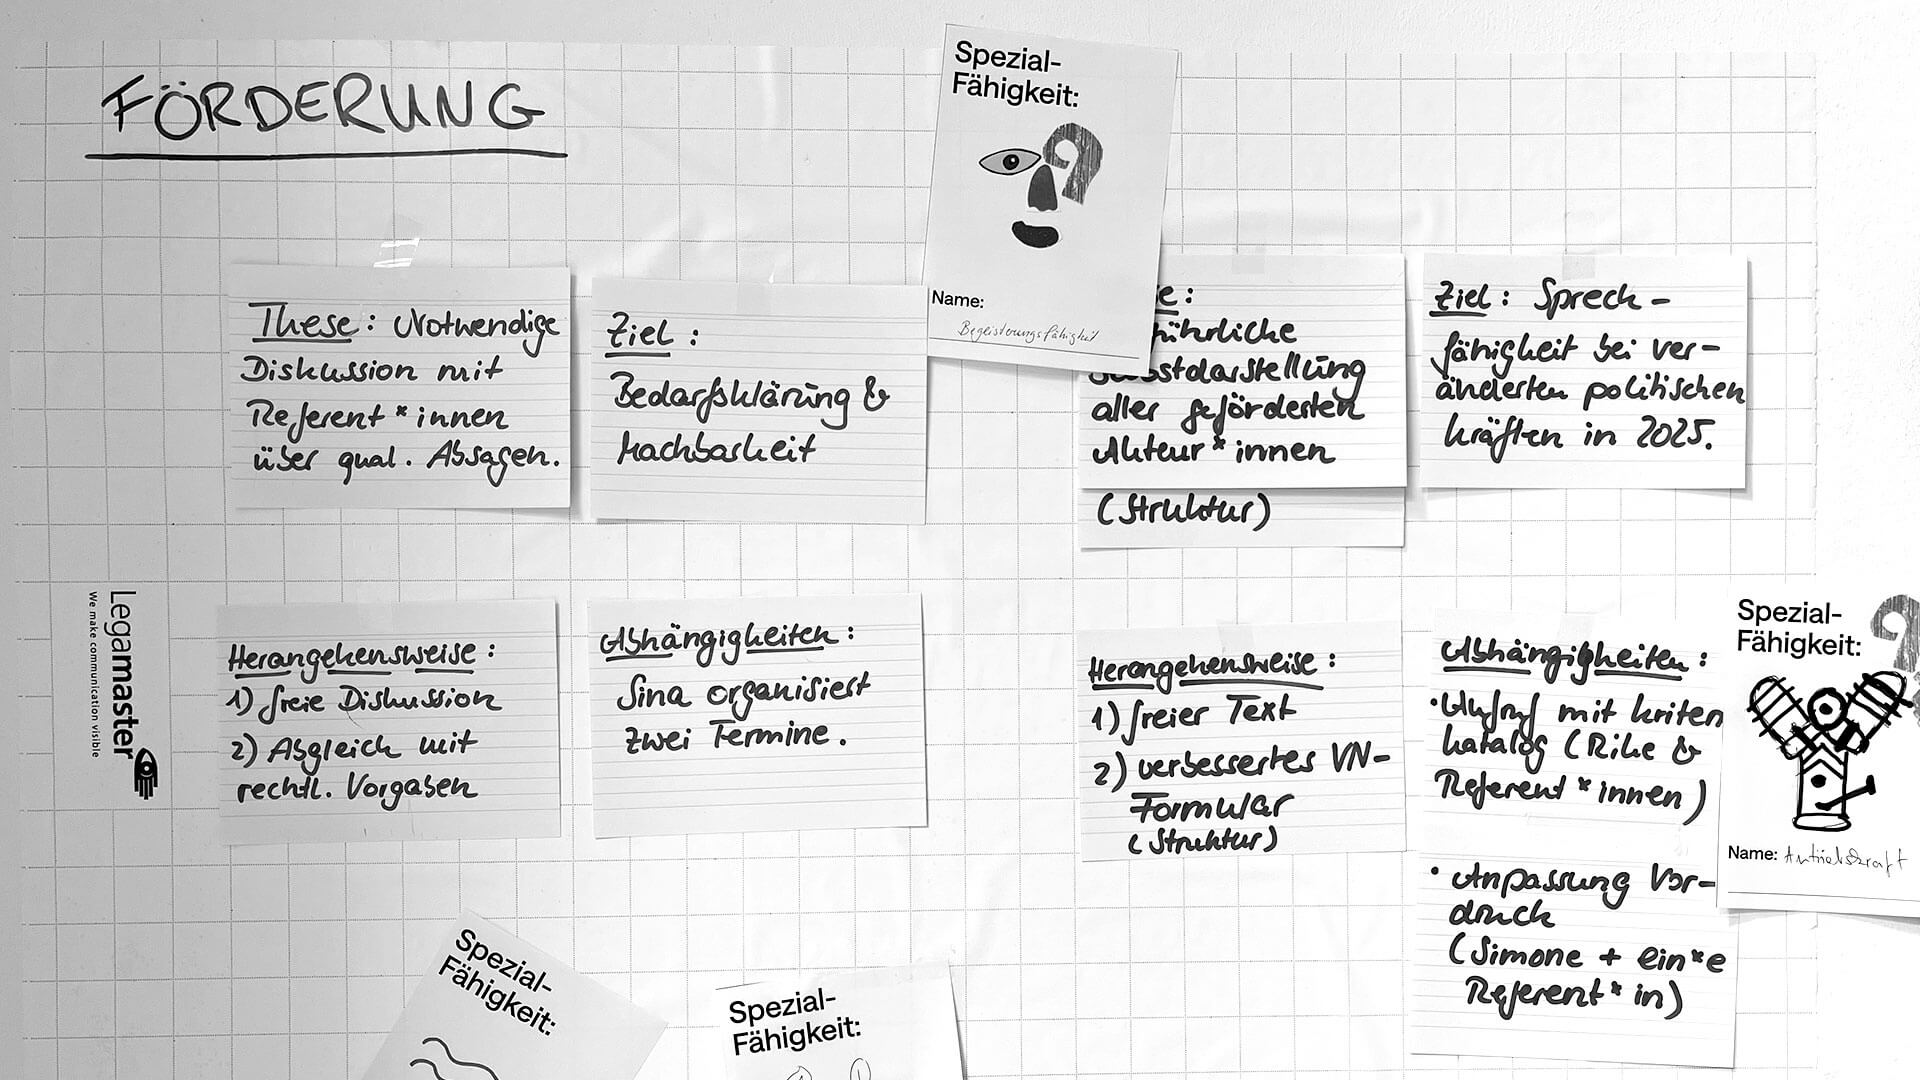 FÖRDERUNG
Spezial-
Fähigkeit:
Name:
Begeisterungsfähigkeit
These: Notwendige
Diskussion mit
Referent*innen
über qual. Absagen.
Ziel:
Bedarfsklärung &
Machbarkeit
aller geförderten
Akteur*innen
(Struktur)
Ziel: Sprech-
fähigkeit bei ver-
änderten politischen
kräften in 2025.
Legamaster
We make communication visible
Herangehensweise:
1) freie Diskussion
2) Abgleich mit
rechtl. Vorgaben
Abhängigkeiten:
Sina organisiert
zwei Termine.
Herangehensweise:
1) freier Text
2) verbessertes VN-
Formular
(Struktur)
Abhängigkeiten:
• Aufruf mit kriten
katalog (Rike &
Referent*innen)
• Anpassung Vor-
druck
(Simone + ein*e
Referent*in)
Spezial-
Fähigkeit:
Name: Antriebskraft
Spezial-
Fähigkeit:
Spezial-
Fähigkeit: